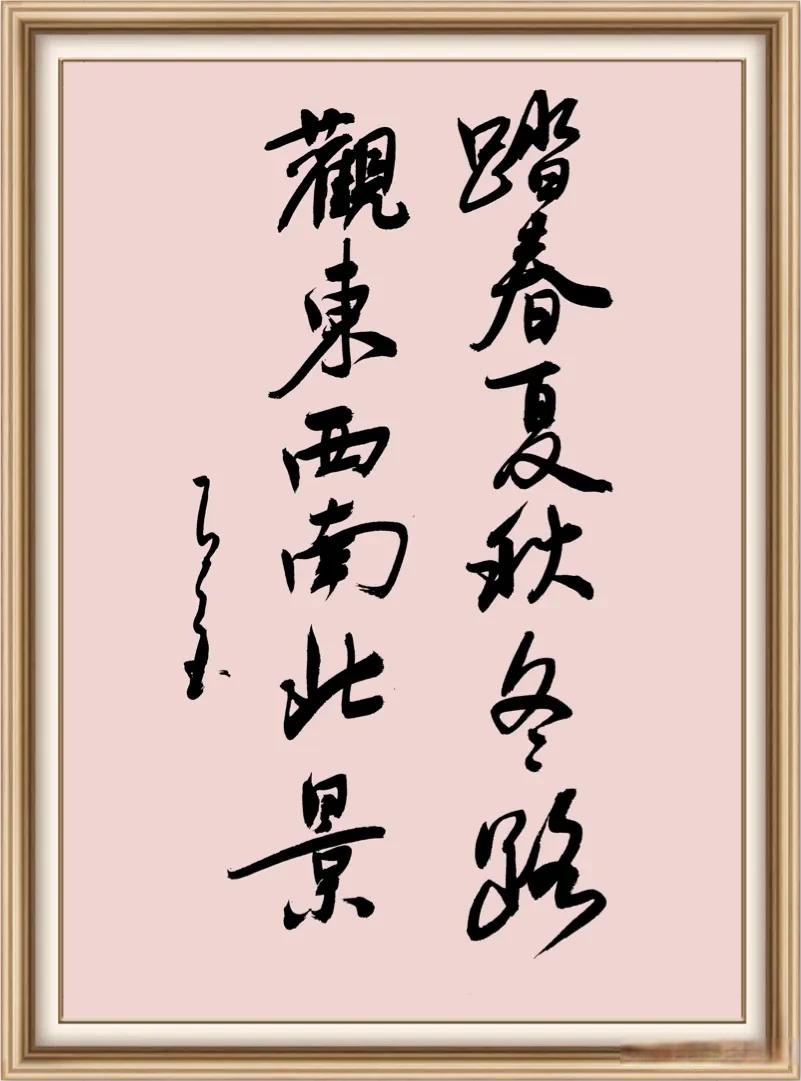 踏春夏秋冬路
觀東西南北景